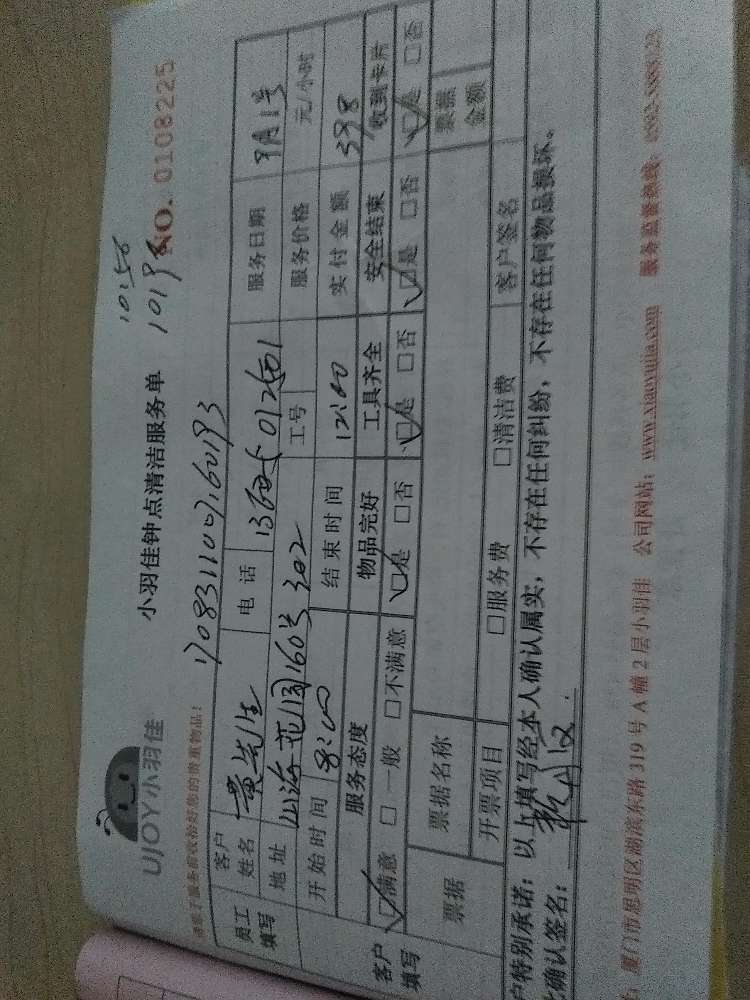 UJOY小羽佳
小羽佳钟点清洁服务单
10156
NO. 0108225
员工填写
客户姓名 黄先生 电话 服务日期 9月1号
地址 山海花园160号302 工号 服务价格 元/小时
开始时间 8:00 结束时间 12:00 实付金额 398
客户填写
服务态度 物品完好 工具齐全 安全结束 收到卡片
☑满意 □一般 □不满意 ☑是 □否 ☑是 □否 ☑是 □否 ☑是 □否
票据 票据名称 票据金额
开票项目 □服务费 □清洁费 客户签名
户特别承诺：以上填写经本人确认属实，不存在任何纠纷，不存在任何物品损坏。
确认签名：
厦门市思明区湖滨东路319号A幢2层小羽佳 公司网站：www.xiaoyujia.com 服务监督热线：